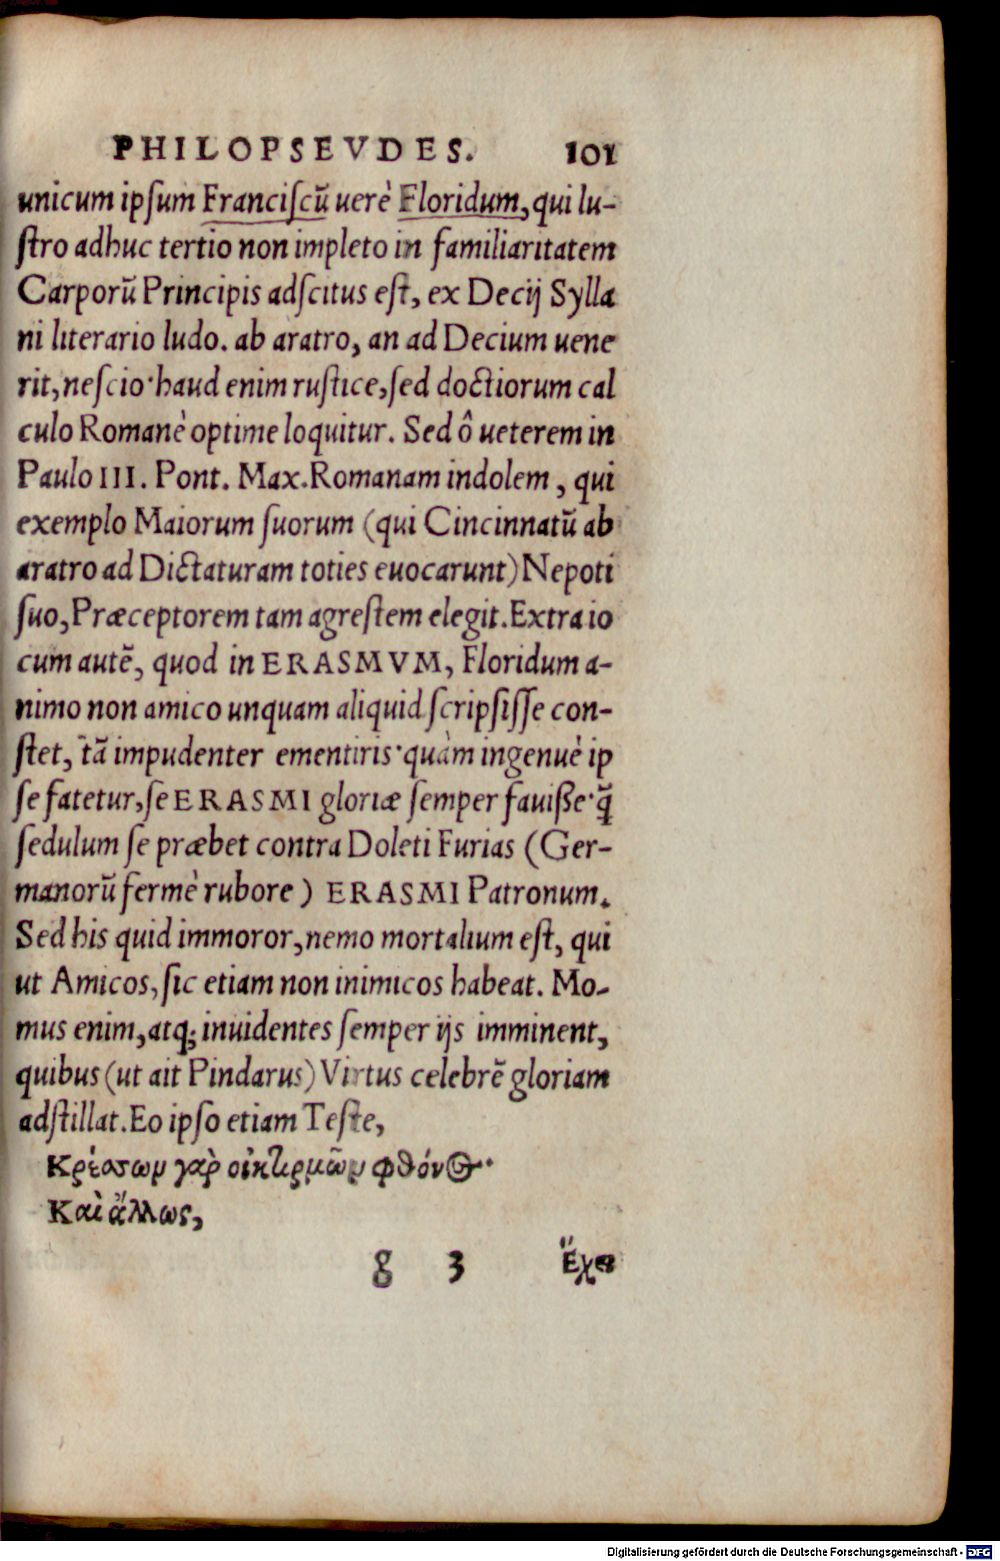 PHILOPSEVDES. 101
unicum ipſum Franciſcũ uerè Floridum, qui lu-
ſtro adhuc tertio non impleto in familiaritatem
Carporũ Principis adſcitus eſt, ex Decij Sylla
ni literario ludo. ab aratro, an ad Decium uene
rit, neſcio·haud enim ruſtice, ſed doctiorum cal
culo Romanè optime loquitur. Sed ô ueterem in
Paulo III. Pont. Max. Romanam indolem, qui
exemplo Maiorum ſuorum (qui Cincinnatũ ab
aratro ad Dictaturam toties euocarunt) Nepoti
ſuo, Præceptorem tam agreſtem elegit. Extra io
cum autẽ, quod in ERASMVM, Floridum a-
nimo non amico unquam aliquid ſcripſiſſe con-
ſtet, tã impudenter ementiris·quàm ingenuè ip
ſe fatetur, ſe ERASMI gloriæ ſemper fauiße·q̃
ſedulum ſe præbet contra Doleti Furias (Ger-
manorũ fermè rubore) ERASMI Patronum.
Sed his quid immoror, nemo mortalium eſt, qui
ut Amicos, ſic etiam non inimicos habeat. Mo-
mus enim, atq; inuidentes ſemper ijs imminent,
quibus (ut ait Pindarus) Virtus celebrẽ gloriam
adſtillat. Eo ipſo etiam Teſte,
Κρέσσων γὰρ οἰκτιρμῶν φθόνος·
Καὶ ἄλλως,
g 3 Ἔχει
Digitalisierung gefördert durch die Deutsche Forschungsgemeinschaft - DFG